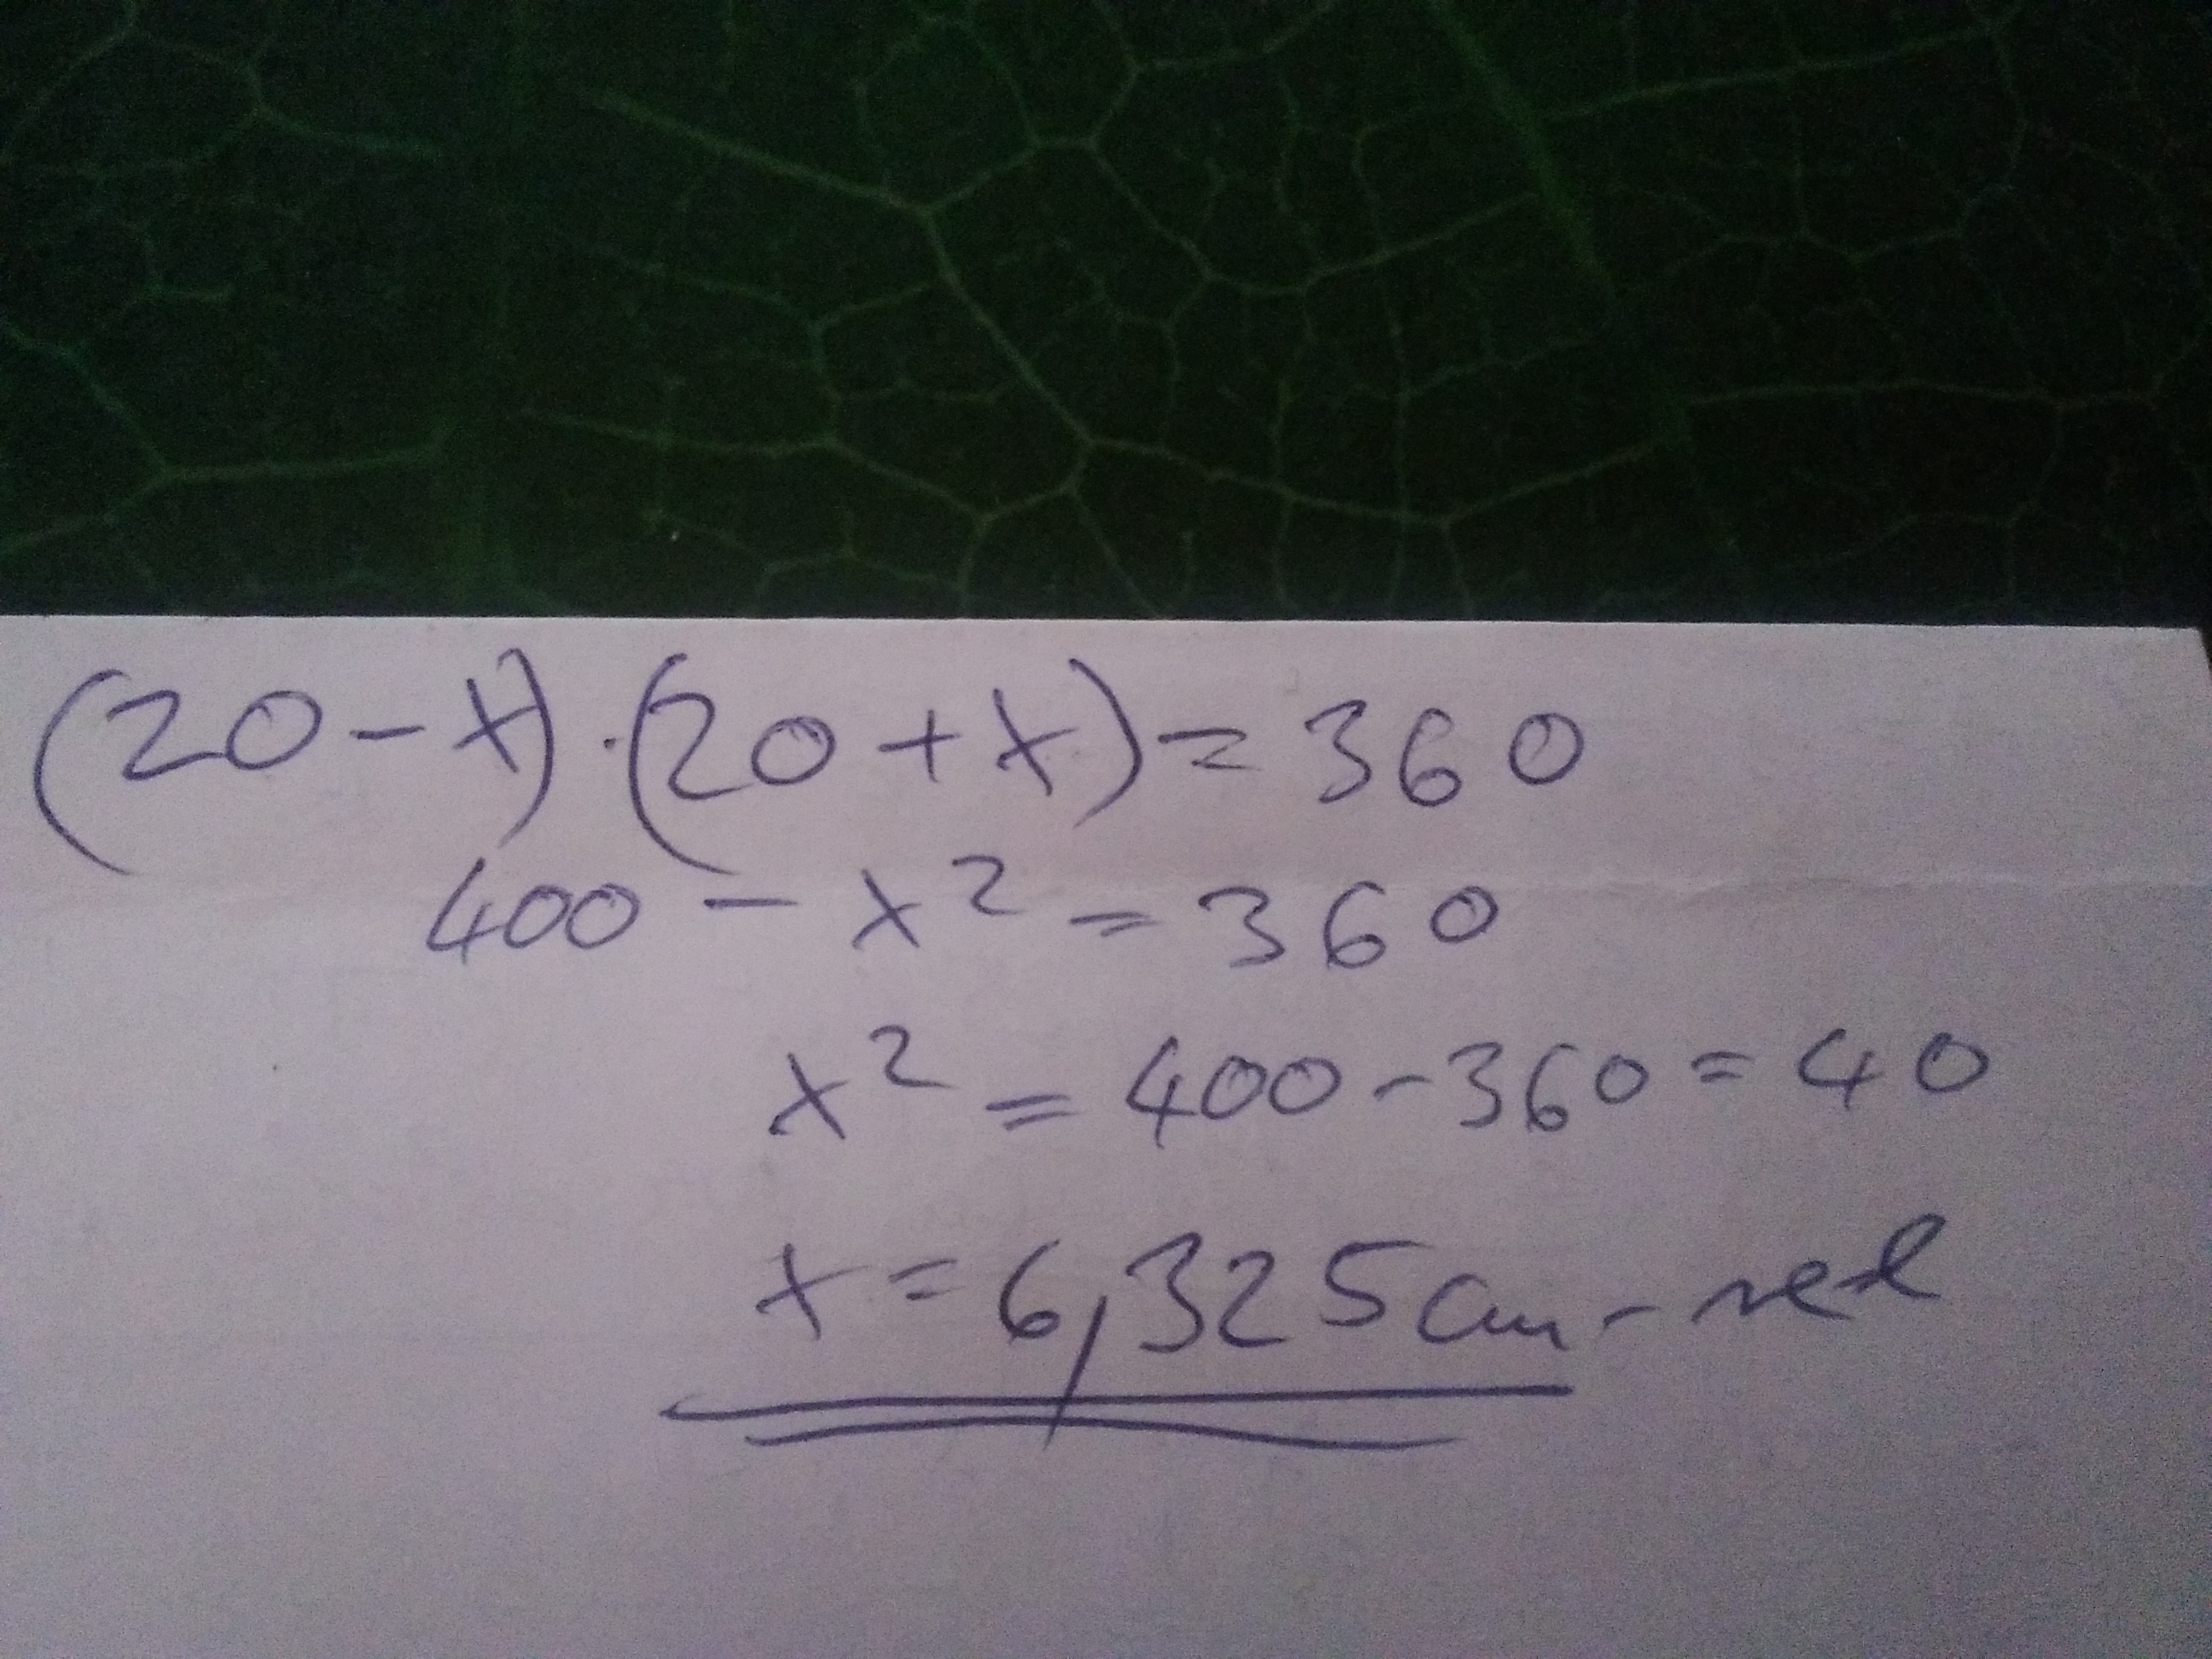 (20-x)·(20+x)=360
400-x²=360
x²=400-360=40
x=6,325cm-rel